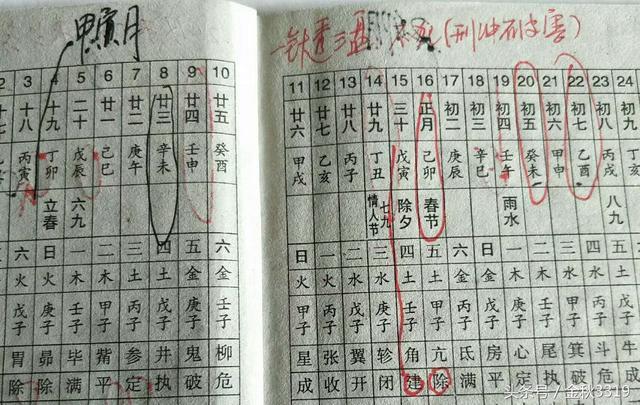 甲寅月
3 4 5 6 7 8 9 10
十八 十九 二十 廿一 廿二 廿三 廿四 廿五
丙寅 丁卯 戊辰 己巳 庚午 辛未 壬申 癸酉
立春 六九
六 日 一 二 三 四 五 六
火 火 木 木 土 土 金 金
戊子 庚子 壬子 甲子 丙子 戊子 庚子 壬子
胃 昴 毕 觜 参 井 鬼 柳
除 除 满 平 定 执 破 危
11 12 13 14 15 16 17 18 19 20 21 22 23 24
廿六 廿七 廿八 廿九 三十 正月 初二 初三 初四 初五 初六 初七 初八 初九
甲戌 乙亥 丙子 丁丑 戊寅 己卯 庚辰 辛巳 壬午 癸未 甲申 乙酉 丙戌
情人节 七九 除夕 春节 雨水 八九
日 一 二 三 四 五 六 日 一 二 三 四 五
火 火 水 水 土 土 金 金 木 木 水 水 土
甲子 丙子 戊子 庚子 壬子 甲子 丙子 戊子 庚子 壬子 甲子 丙子 戊子
星 张 翼 轸 角 亢 氐 房 心 尾 箕 斗 牛
成 收 开 闭 建 除 满 平 定 执 破 危 成
头条号 / 金秋3319